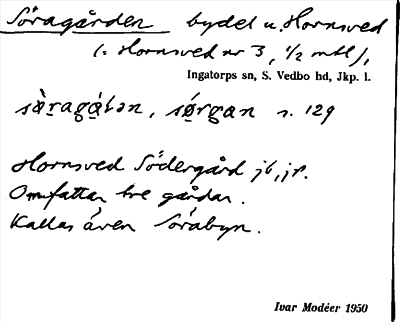 Söragården bydel u. Hornsved
(: Hornsved nr 3, 1/2 mtl),
Ingatorps sn, S. Vedbo hd, Jkp. l.
s. 129
Hornsved Södergård jb, jr.
Omfattar tre gårdar.
Kallas även Sörabyn.
Ivar Modéer 1950